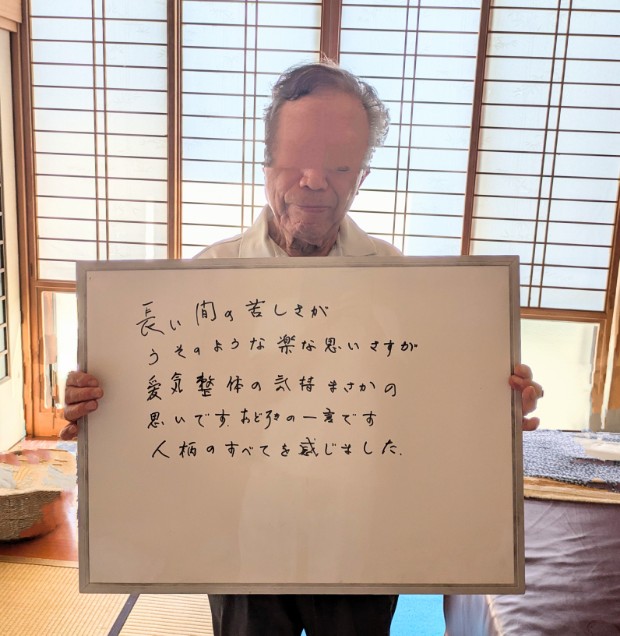 長い間の苦しさが
うそのような楽な思いさすが
愛気整体の気持まさかの
思いです。おどろきの一言です
人柄のすべてを感じました。